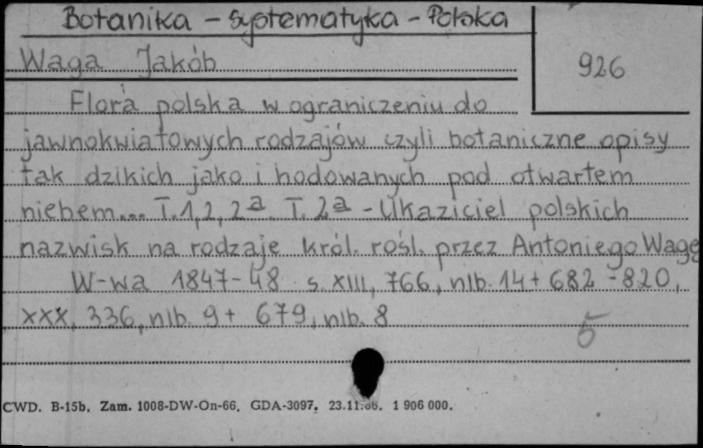 Botanika - Systematyka - Polska
Waga Jakób
926
Flora polska w ograniczeniu do
jawnokwiatowych rodzajów czyli botaniczne opisy
tak dzikich jako i hodowanych pod otwartem
niebem... T. 1, 2, 2a. T. 2a - Ukaziciel polskich
nazwisk na rodzaje król. rośl. przez Antoniego Wagę
W-wa 1847-48 s. XIII, 766, nlb. 14 + 682 - 820,
XXX, 336, nlb. 9 + 679, nlb. 8
5
CWD. B-15b. Zam. 1008-DW-On-66. GDA-3097. 23.11.66. 1 906 000.